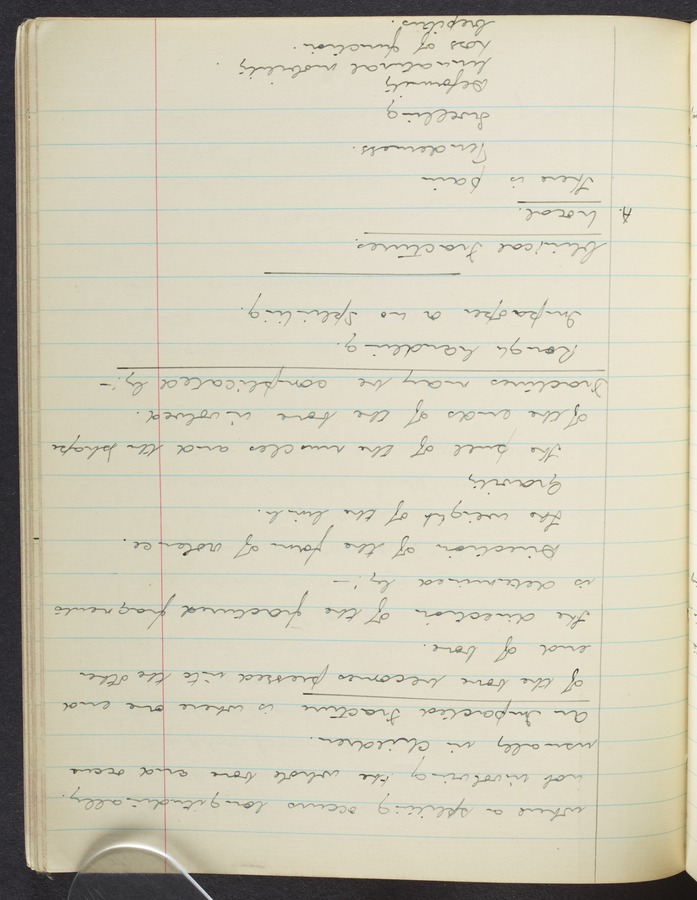 where a spliting occurs longitudinally.
not involving the whole bone and occur
usually in Children.
An Impacted Fracture is where one end
of the bone becomes pressed into the other
end of bone.
The direction of the fractured fragments
is determined by:-
Direction of the form of violence.
The weight of the limb.
Gravity
The pull of the muscles and the shape
of the ends of the bone involved.
Fractures may be complicated by:-
Rough handling.
Improper or no Splinting.
Clinical Fractures.
A. Local.
There is pain
Tenderness.
Swelling
Deformity
Unnatural mobility.
Loss of function.
Crepitus.